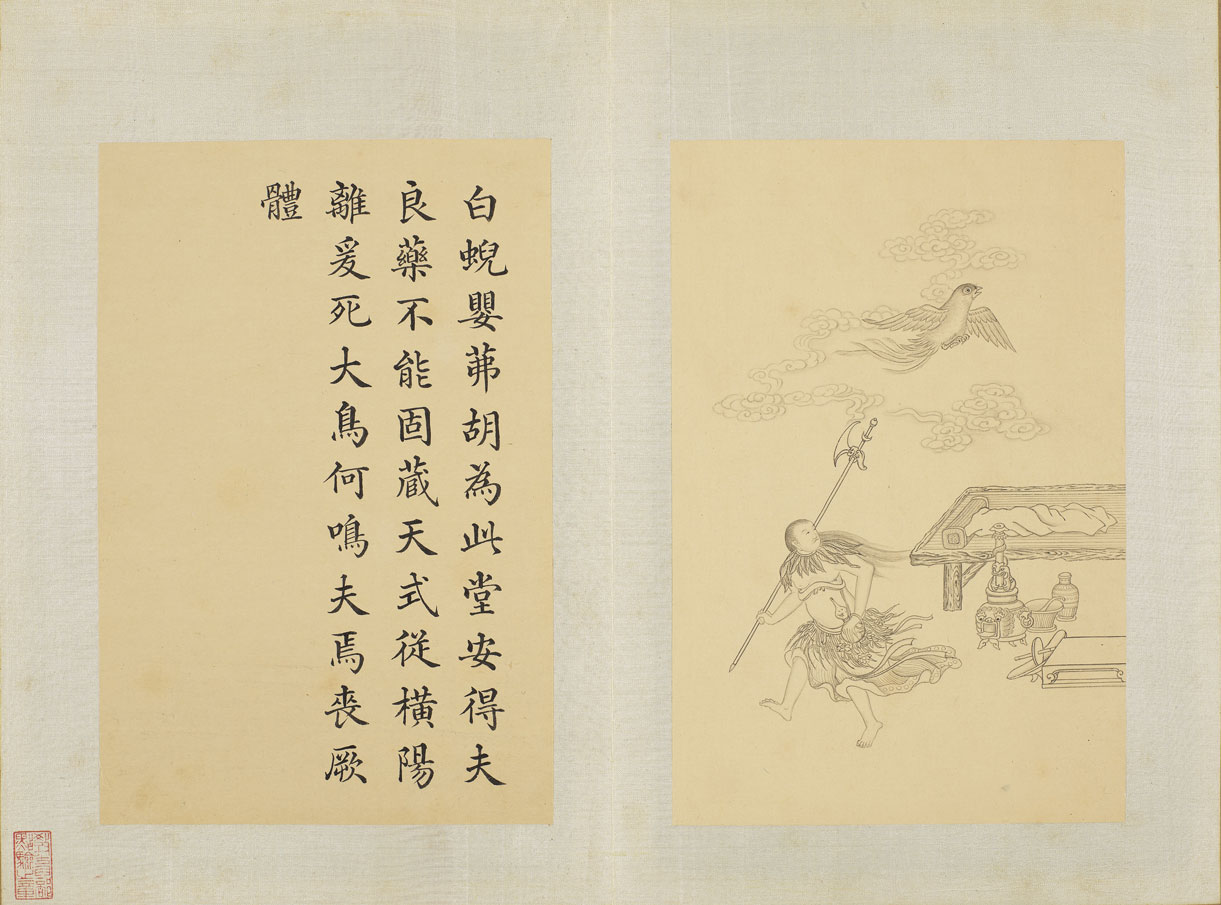 白蜺嬰茀胡為此堂安得夫
良藥不能固蔵天式從橫陽
離爰死大鳥何鳴夫焉喪厥
體